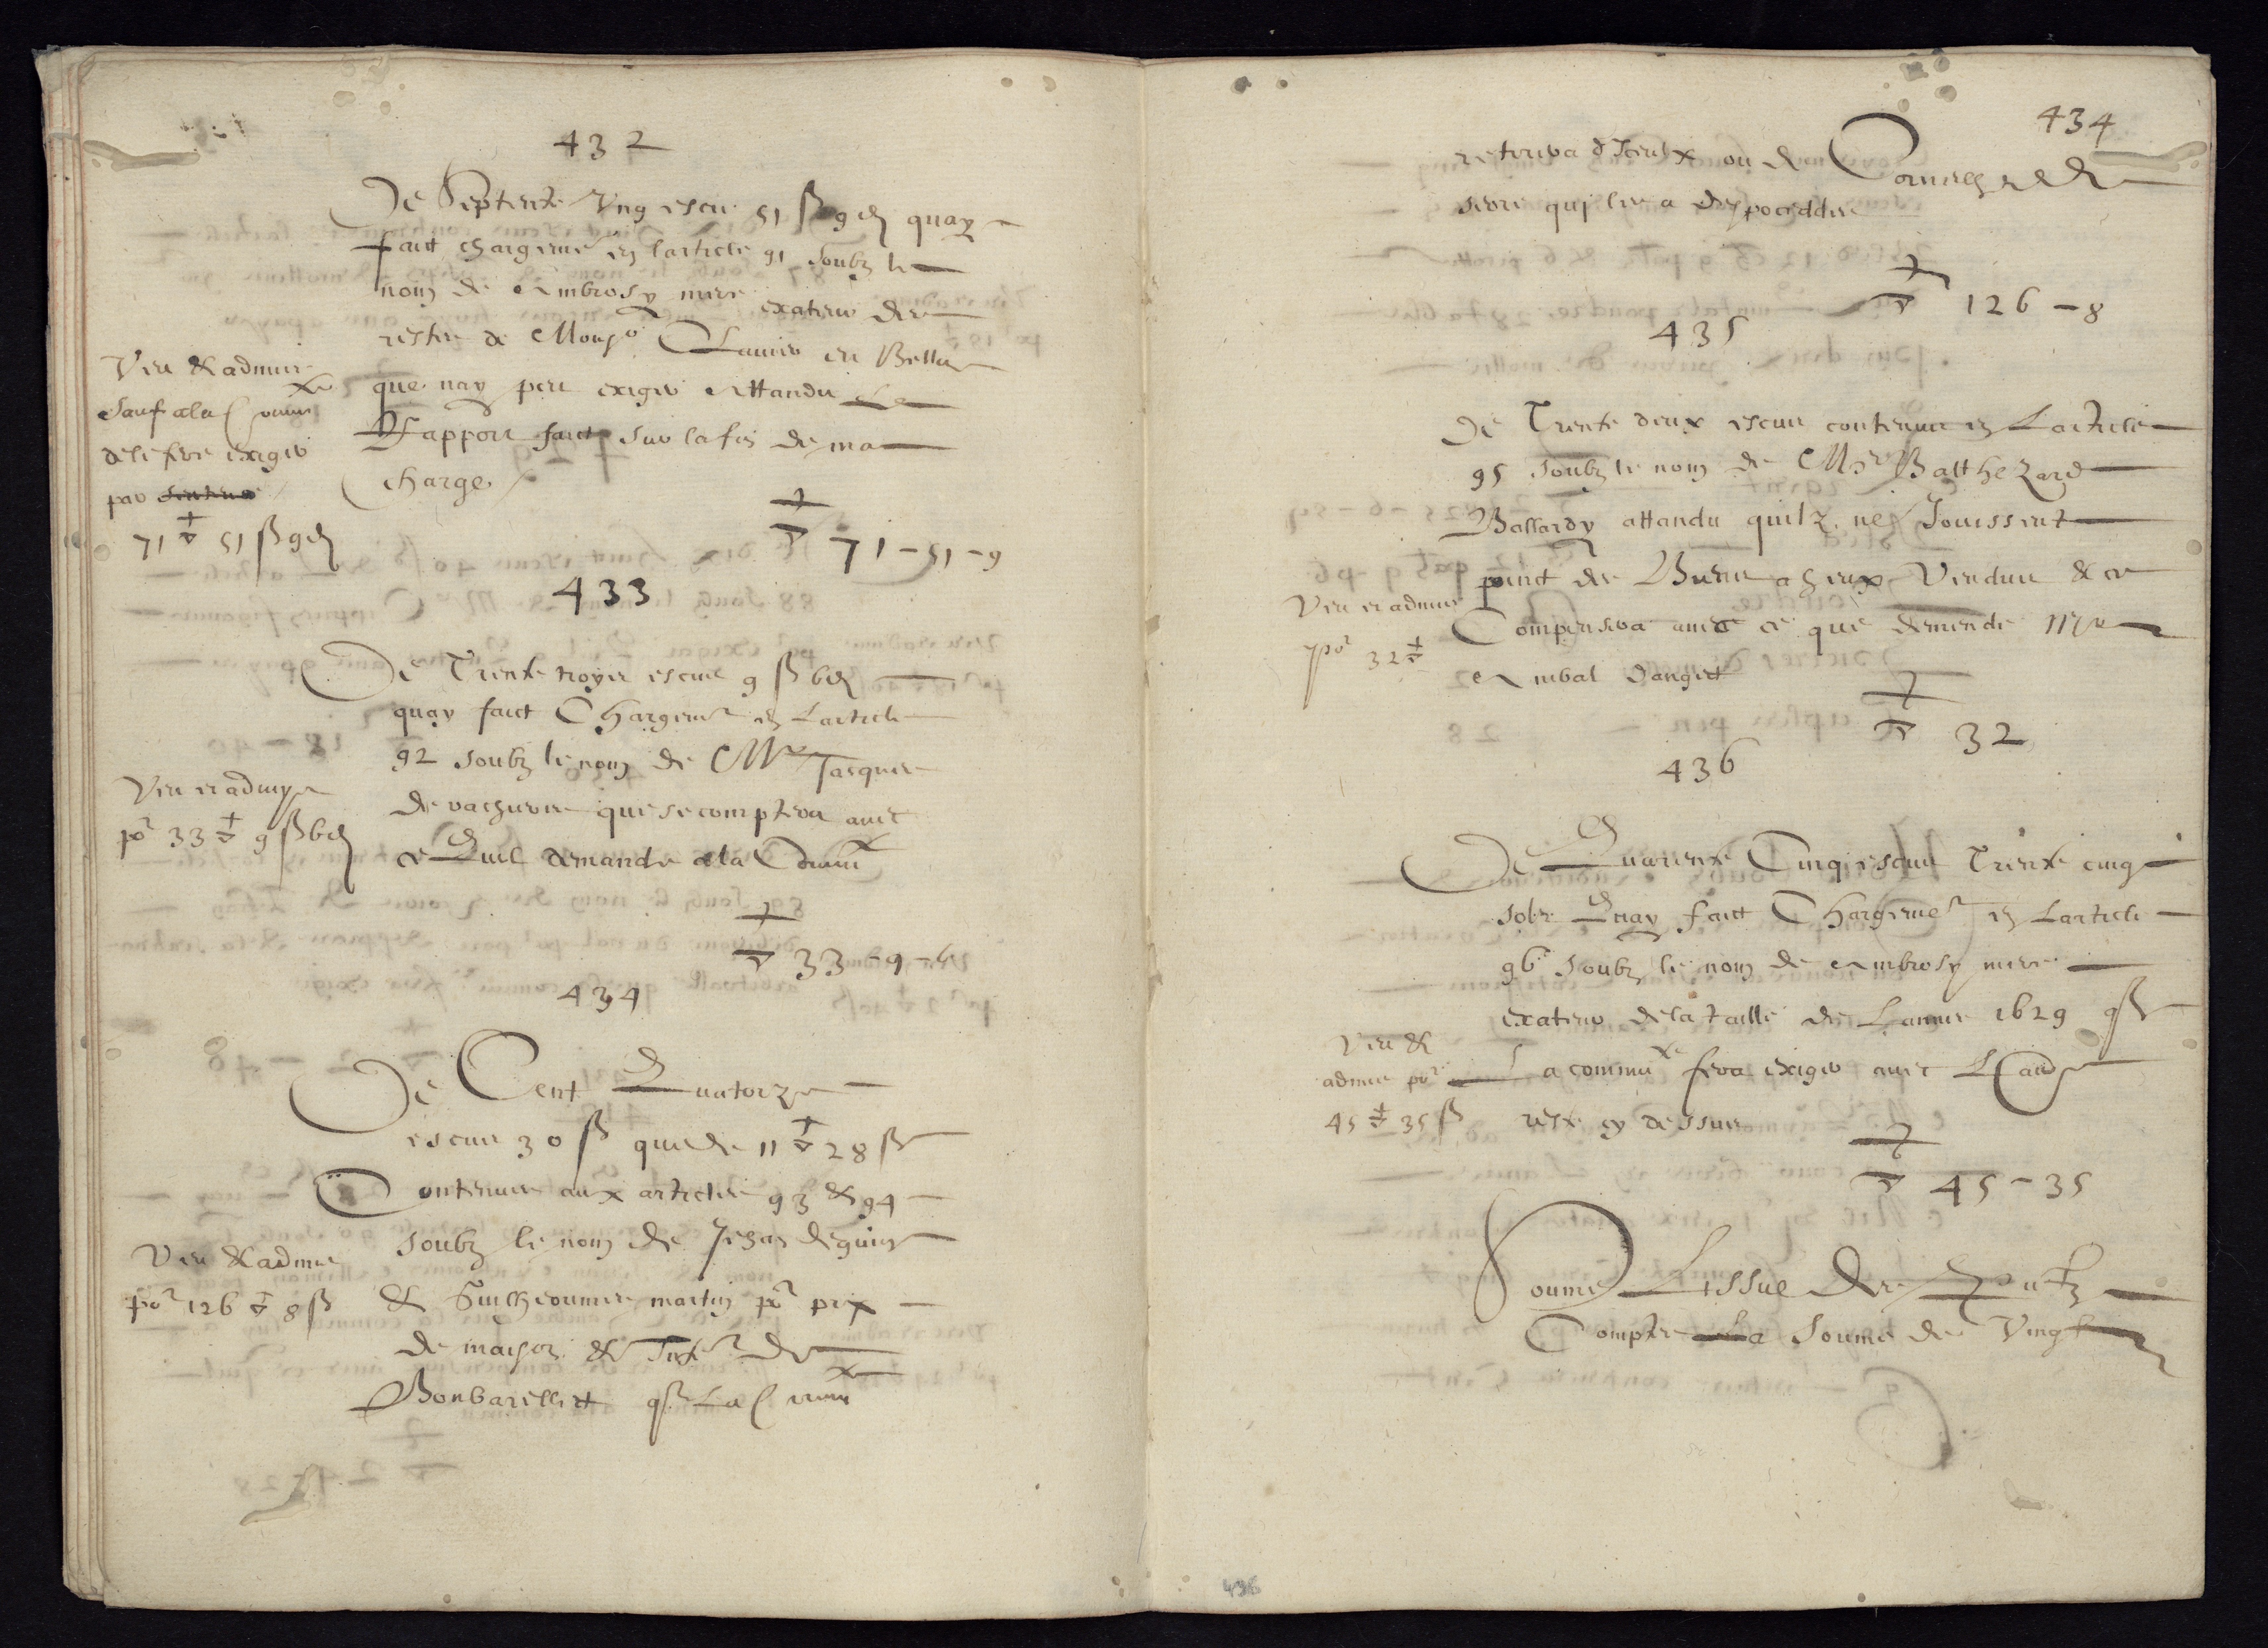 432
De Septente Ung escu 51 ß 9 d quay
faict chargeme en larticle 91 soubz le
nom de Ambrosy mere exateur des
restes de Monsr
que nay peu exiger Attandu Le
Rapport faict sur la fin de ma
charge
Veu & admis
sauf a la Commte
de le fere exiger
par
71 51 ß 9 d
71 - 51 - 9
433
De Trente troys escus 9 ß 6 d
quay faict Chargemt en Larticle
92 soubz le nom de Mre Jacques
de vachieres que se comptera avec
ce Quil demande a la Commte
Veu et admys
por 33 9 ß 6 d
33 - 9 - 6
434
De Cent Quatorze
escus 30 ß que de 11 28 ß
Contenus aux articles 93 & 94
soubz le nom de Jehan
& Guilheoumes martin por prix
de maison & de
Bonbarellet q La Commte
Veu & admis
por 126 8 ß
434
retirera diceulx ou de
quy les a
126 - 8
435
De Trente deux escus contenus en Larticle
95 soubz le nom de Mre Balthezard
Ballardy attandu quilz ne Jouissent
point des Biens a heux Vendus & ce
Compensera avec ce que demende Mre
Anibal dangect
Veu et admis
por 32
32
436
De Quarente Cinq escus Trente cinq
solz Quay faict Chargemet en Larticle
96 soubz le nom de Ambrosy mere
exateur de la taille de Lannee 1629 q
La commte fera exiger avec
reste cy dessus
Veu &
admis por
45 35 ß
45 - 35
Soume Lissue des
Compte La Soume de Vingt
436